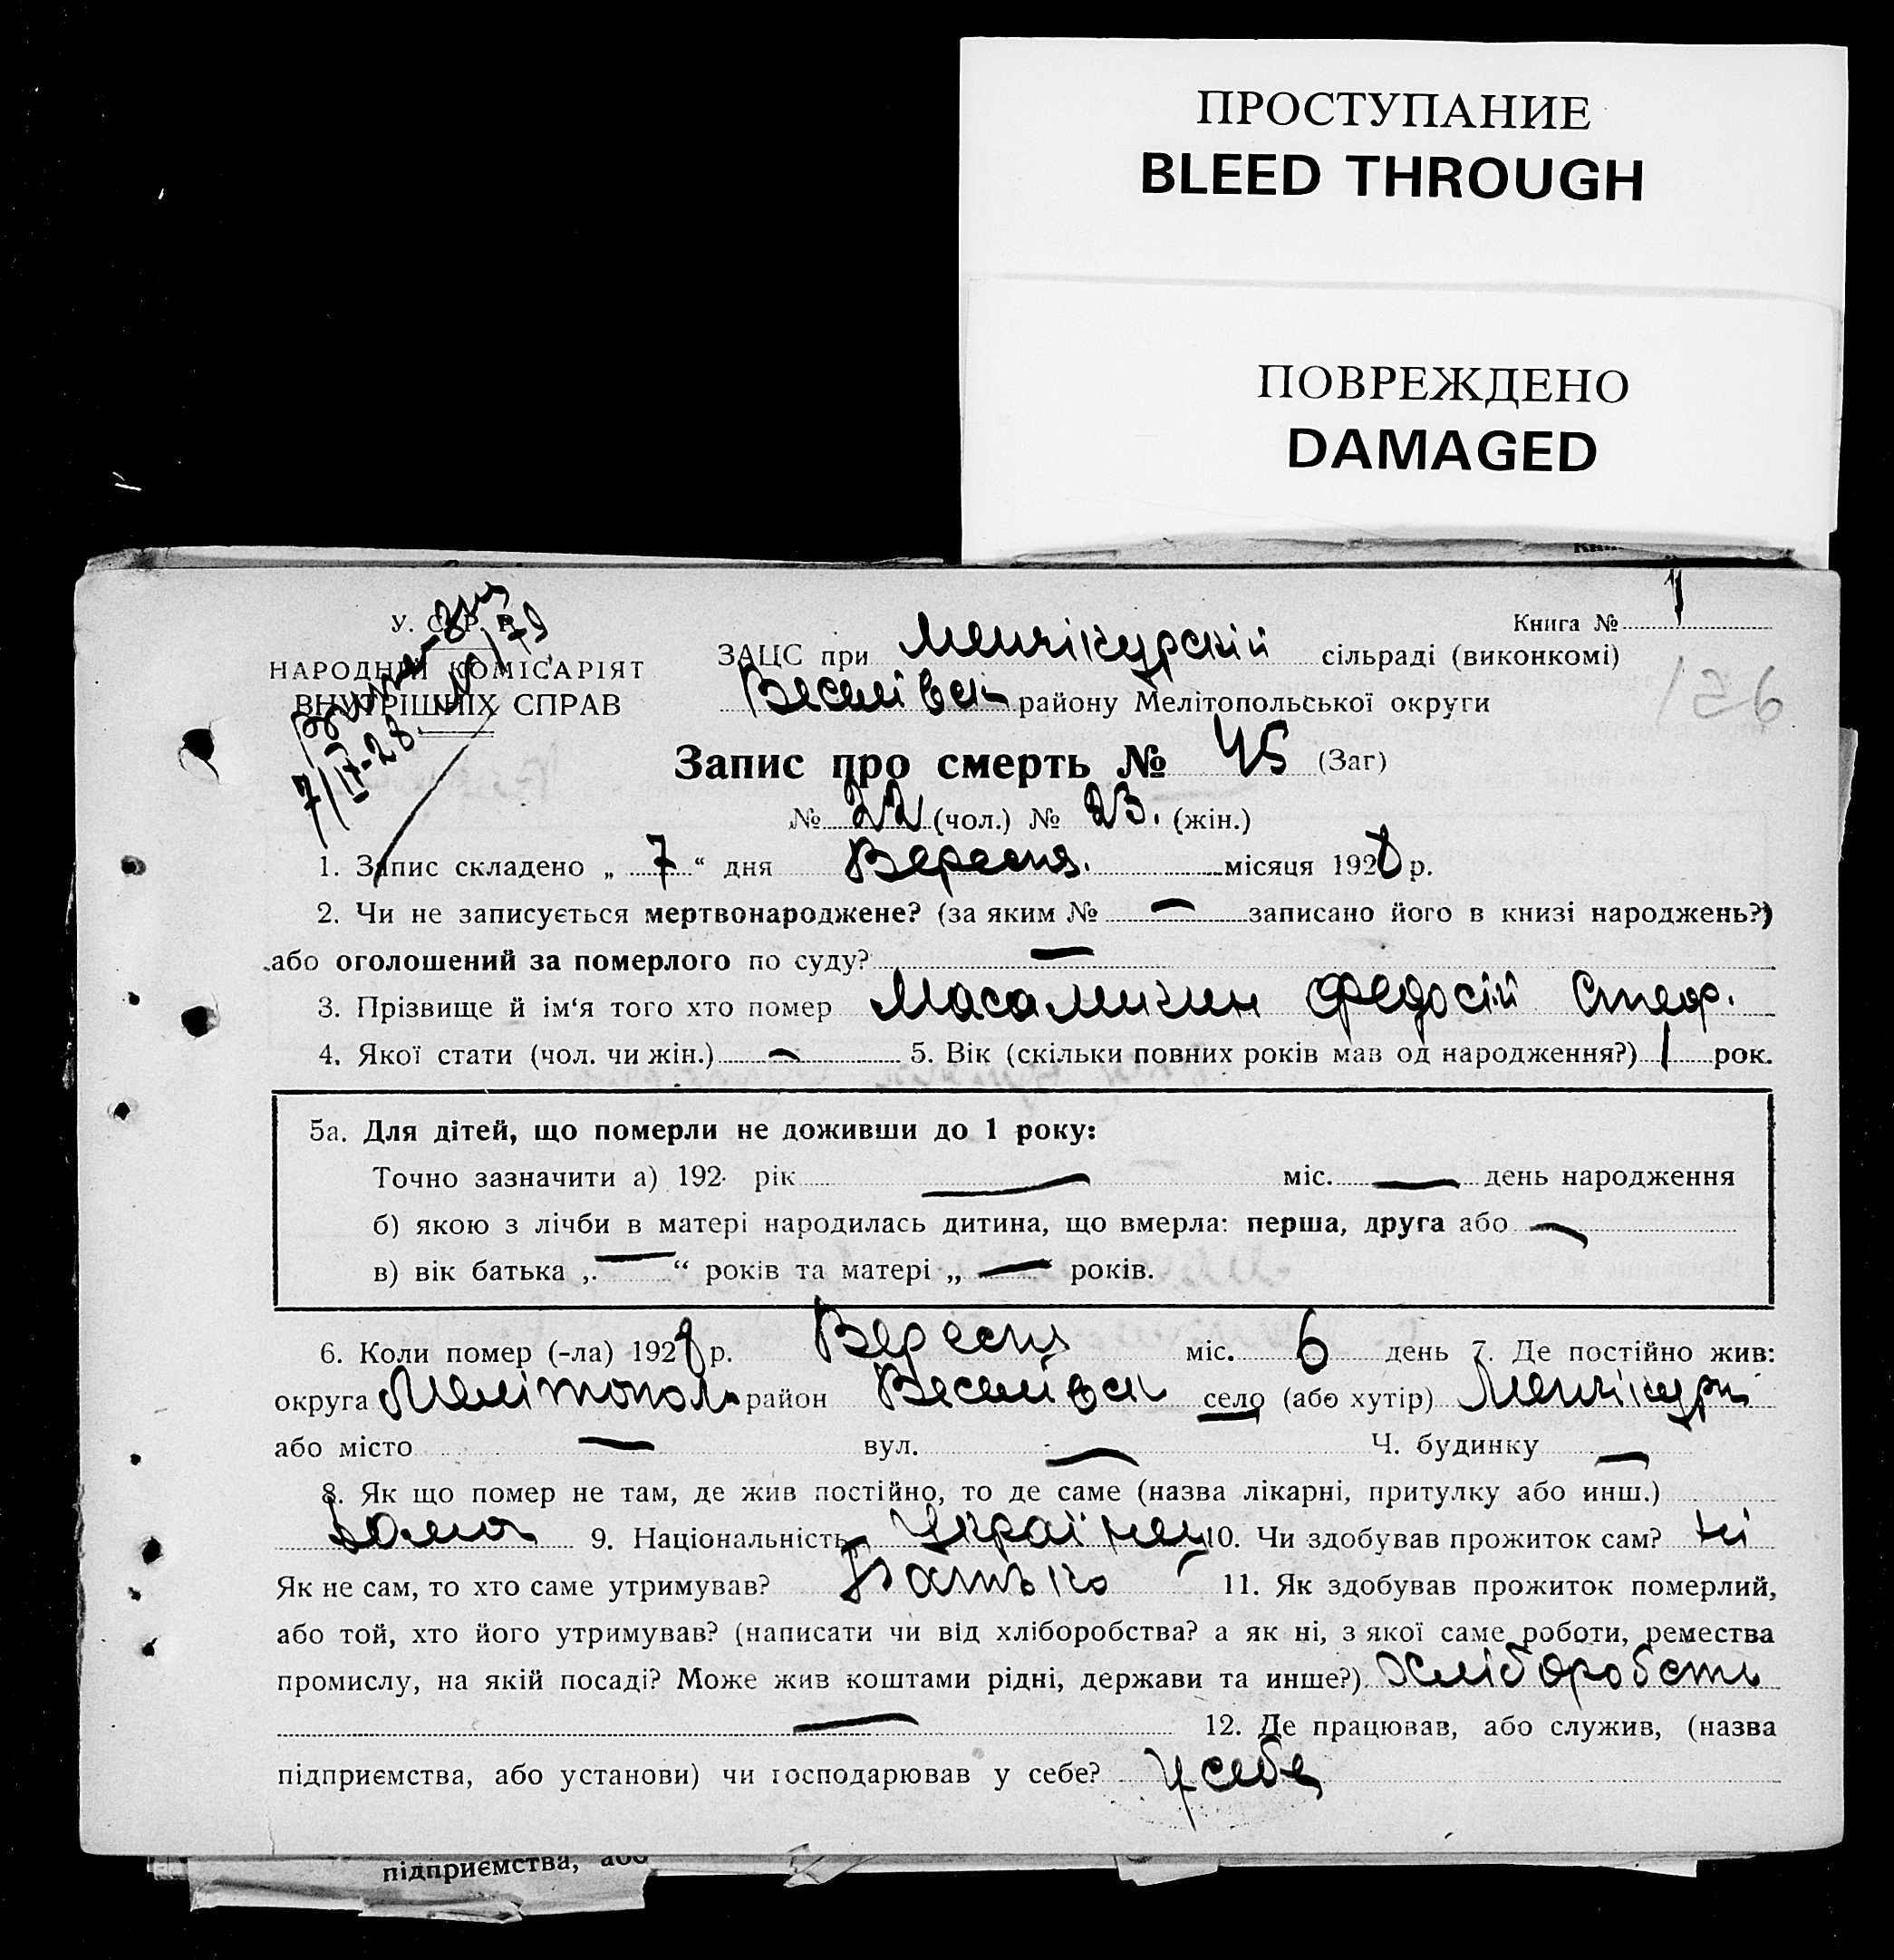 ПРОСТУПАНИЕ
BLEED THROUGH
ПОВРЕЖДЕНО
DAMAGED
У. С. Р. Р.
НАРОДНІЙ КОМІСАРІЯТ
ВНУТРІШНІХ СПРАВ
7/IX-28
Книга № 1
ЗАЦС при Менчікурскій сільраді (виконкомі)
Веселівск району Мелітопольської округи
136
Запис про смерть № 45 (Заг)
№ 22 (чол.) № 23. (жін.)
1. Запис складено „ 7 “ дня Вересня. місяця 1928 р.
2. Чи не записується мертвонароджене? (за яким № — записано його в книзі народжень?)
або оголошений за померлого по суду? —
3. Прізвище й ім‘я того хто помер Масаликин Федосій Стеф.
4. Якої стати (чол. чи жін.) — 5. Вік (скільки повних років мав од народження?) 1 рок.
5а. Для дітей, що померли не доживши до 1 року:
Точно зазначити а) 192 рік — міс. — день народження
б) якою з лічби в матері народилась дитина, що вмерла: перша, друга або —
в) вік батька „ — “ років та матері „ — років.
6. Коли помер (-ла) 1928 р. Вересня міс. 6 день 7. Де постійно жив:
округа Мелітопол район Веселівск село (або хутір) Менчікури
або місто — вул. — Ч. будинку —
8. Як що помер не там, де жив постійно, то де саме (назва лікарні, притулку або инш.)
Дома 9. Національність Українец 10. Чи здобував прожиток сам? Ні
Як не сам, то хто саме утримував? Батько 11. Як здобував прожиток померлий,
або той, хто його утримував? (написати чи від хліборобства? а як ні, з якої саме роботи, ремества
промислу, на якій посаді? Може жив коштами рідні, держави та инше?) Хліборобств
— 12. Де працював, або служив, (назва
підприємства, або установи) чи господарював у себе? У себе
підприємства, або